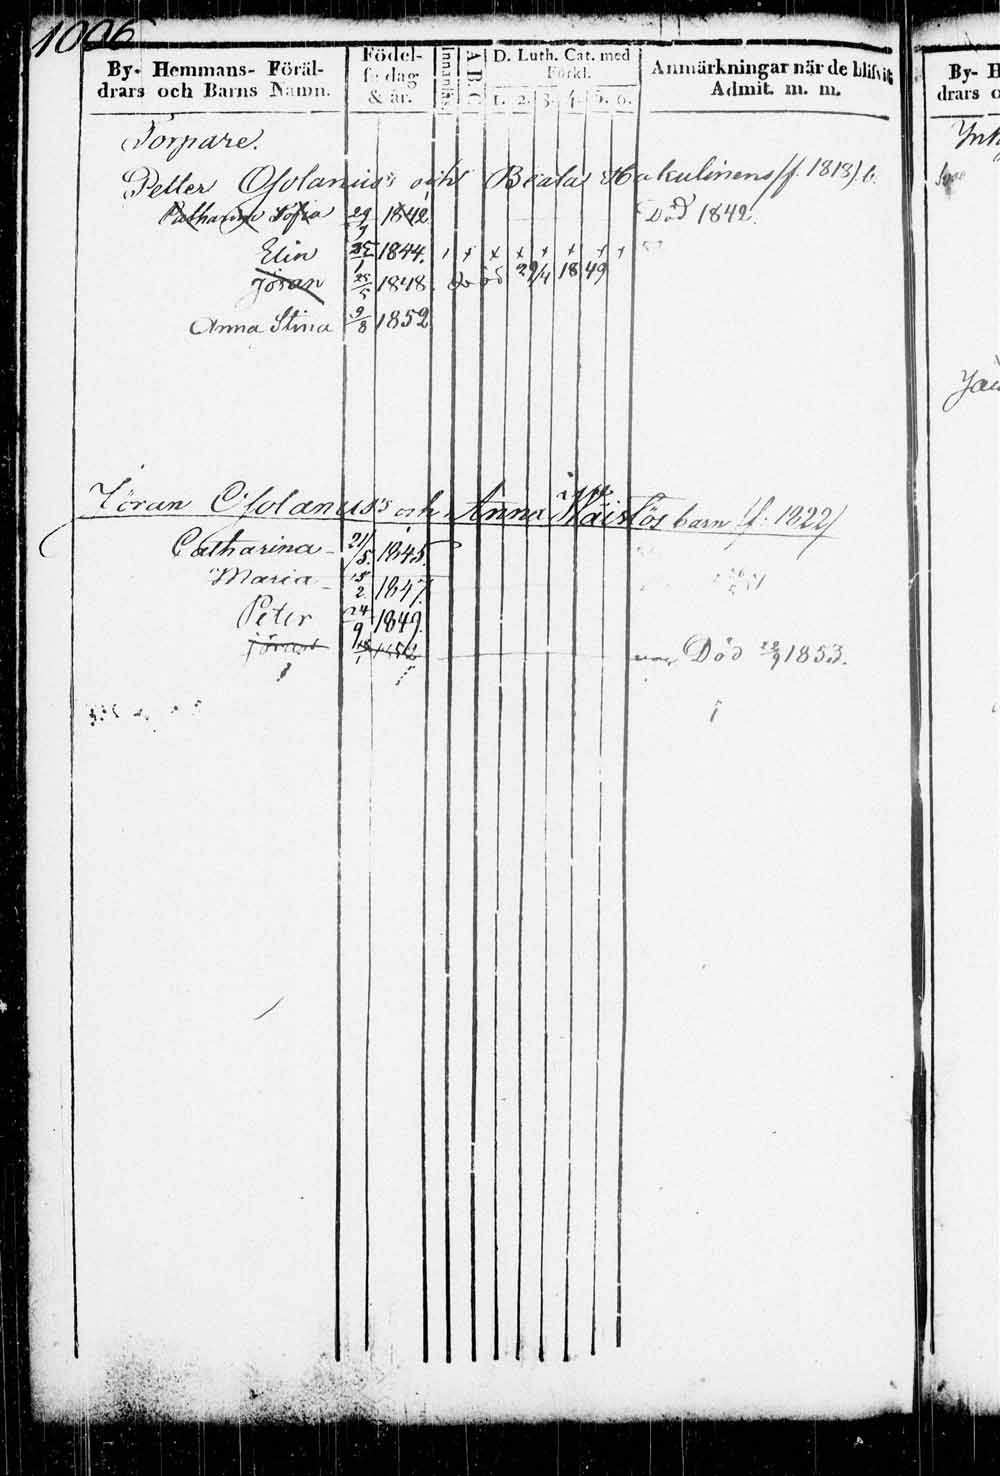 1006
By- Hemmans- Föräl-
drars och Barns Namn.
Födel-
se dag
& år.
Innanläs.
A B C
D. Luth. Cat. med
Förkl.
1. 2. 3. 4. 5. 6.
Anmärkningar när de blifvit
Admit. m. m.
Torpare.
Petter Olsolanus's och Beata Hakulinens (f. 1818) b.
Catharina Sofia 29/9 1842 Död 1842.
Elin 1844. x x x x x x
Jöran 25/5 1848. död 29/4 1849
Anna Stina 9/8 1852
Jöran Olsolanus's och Anna Wäistös barn (f. 1822)
Catharina 21/5. 1845.
Maria 15/2 1847.
Peter 24/9 1849.
Jöran 1852 Död 1853.
By- H
drars o